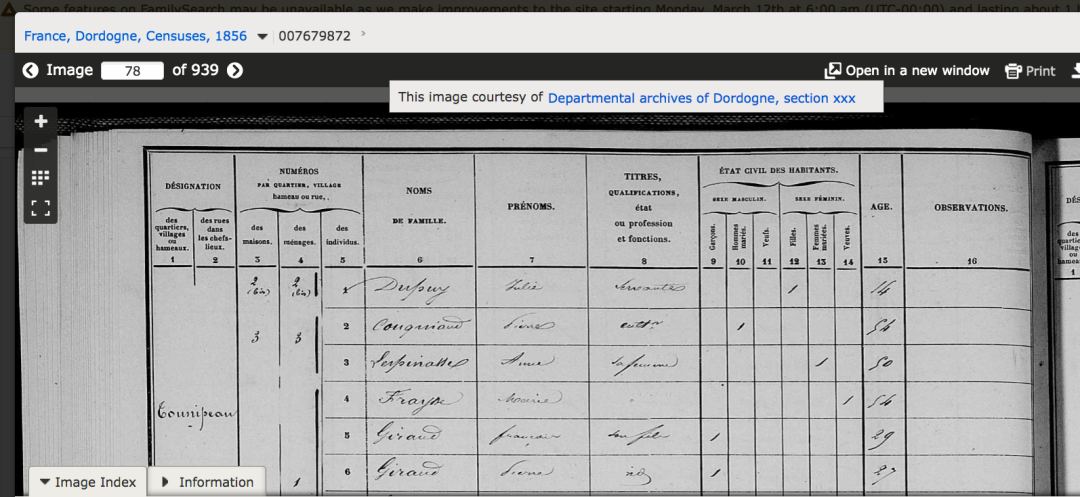 Some features on FamilySearch may be unavailable as we make improvements to the site starting Monday, March 12th at 6:00 am (UTC-00:00) and lasting about 1
France, Dordogne, Censuses, 1856 007679872
Image 78 of 939 Open in a new window Print
This image courtesy of Departmental archives of Dordogne, section xxx
DÉSIGNATION
des quartiers, villages ou hameaux.
1
des rues dans les chefs-lieux.
2
NUMÉROS
PAR QUARTIER, VILLAGE
hameau ou rue,
des maisons.
3
des ménages.
4
des individus.
5
NOMS
DE FAMILLE.
6
PRÉNOMS.
7
TITRES,
QUALIFICATIONS,
état
ou profession
et fonctions.
8
ÉTAT CIVIL DES HABITANTS.
SEXE MASCULIN.
Garçons.
9
Hommes mariés.
10
Veufs.
11
SEXE FÉMININ.
Filles.
12
Femmes mariées.
13
Veuves.
14
AGE.
15
OBSERVATIONS.
16
2 (bis) 2 (bis) 1 Dupuy Julie servante 1 14
3 3 2 Pierre cultr 1 54
3 Lespinasse Anne sa femme 1 50
4 Fraysse Marie 1 54
5 Giraud françois son fils 1 29
6 Giraud Pierre id 1 27
1
DÉS
des
quartie
village
ou
hamea
1
Image Index
Information